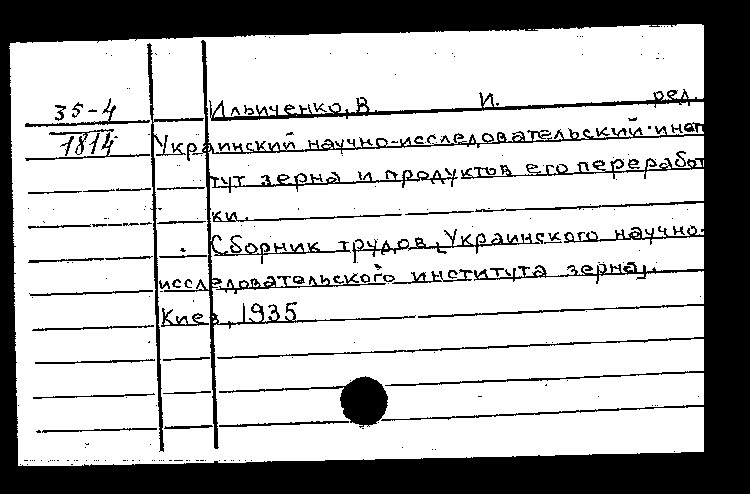 35-4
1814
Ильиченко, В. И. ред.
Украинский научно-исследовательский инст
тут зерна и продуктов его переработ
ки.
Сборник трудов [Украинского научно-
исследовательского института зерна].
Киев, 1935